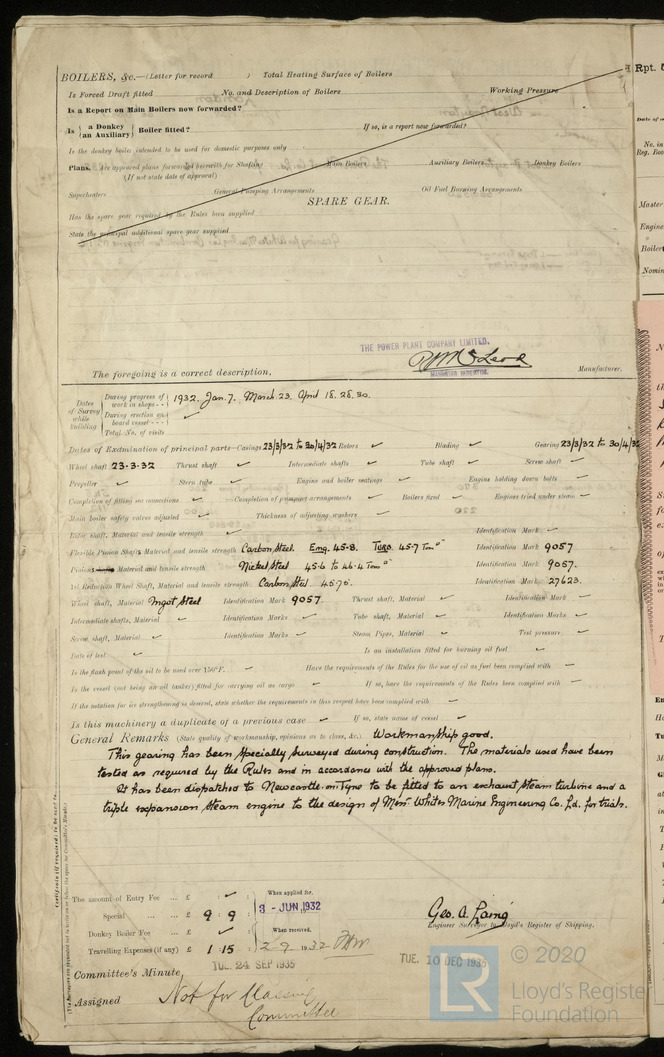 BOILERS, &c.—(Letter for record ) Total Heating Surface of Boilers
Is Forced Draft fitted No. and Description of Boilers Working Pressure
Is a Report on Main Boilers now forwarded?
Is { a Donkey / an Auxiliary } Boiler fitted? If so, is a report now forwarded?
Is the donkey boiler intended to be used for domestic purposes only
Plans. Are approved plans forwarded herewith for Shafting Main Boilers Auxiliary Boilers Donkey Boilers
(If not state date of approval)
Superheaters General Pumping Arrangements Oil Fuel Burning Arrangements
SPARE GEAR.
Has the spare gear required by the Rules been supplied
State the principal additional spare gear supplied
THE POWER PLANT COMPANY LIMITED.
The foregoing is a correct description, Manufacturer.
Dates of Survey while building
During progress of work in shops - - 1932. Jan. 7. March. 23. April 18. 28. 30.
During erection on board vessel - - - ✓
Total No. of visits
Dates of Examination of principal parts—Casings 23/3/32 to 20/4/32 Rotors ✓ Blading ✓ Gearing 23/3/32 to 30/4/32
Wheel shaft 23.3.32 Thrust shaft ✓ Intermediate shafts ✓ Tube shaft ✓ Screw shaft ✓
Propeller ✓ Stern tube ✓ Engine and boiler seatings ✓ Engine holding down bolts ✓
Completion of fitting sea connections ✓ Completion of pumping arrangements ✓ Boilers fixed ✓ Engines tried under steam ✓
Main boiler safety valves adjusted ✓ Thickness of adjusting washers ✓
Rotor shaft, Material and tensile strength ✓ Identification Mark ✓
Flexible Pinion Shafts Material and tensile strength Carbon Steel. Eng. 45.8. Turb. 45.7 Ton □" Identification Mark 9057
Pinions Material and tensile strength Nickel Steel 45.6 to 46.4 Ton □" Identification Mark 9057.
1st Reduction Wheel Shaft, Material and tensile strength Carbon Steel. Identification Mark 27623.
Wheel shaft, Material Ingot Steel Identification Mark 9057 Thrust shaft, Material ✓ Identification Mark ✓
Intermediate shafts, Material ✓ Identification Marks ✓ Tube shaft, Material ✓ Identification Marks ✓
Screw shaft, Material ✓ Identification Marks ✓ Steam Pipes, Material ✓ Test pressure ✓
Date of test ✓ Is an installation fitted for burning oil fuel ✓
Is the flash point of the oil to be used over 150°F. ✓ Have the requirements of the Rules for the use of oil as fuel been complied with ✓
Is the vessel (not being an oil tanker) fitted for carrying oil as cargo ✓ If so, have the requirements of the Rules been complied with ✓
If the notation for ice strengthening is desired, state whether the requirements in this respect have been complied with ✓
Is this machinery a duplicate of a previous case ✓ If so, state name of vessel ✓
General Remarks (State quality of workmanship, opinions as to class, &c.) Workmanship good.
This gearing has been specially surveyed during construction. The materials used have been
tested as required by the Rules and in accordance with the approved plans.
It has been dispatched to Newcastle-on-Tyne to be fitted to an exhaust steam turbine and a
triple expansion steam engine to the design of Messrs Whites Marine Engineering Co. Ld. for trials.
The amount of Entry Fee ... £ ✓ When applied for,
Special ... ... £ 9 : 9 3 - JUN 1932
Donkey Boiler Fee ... £ ✓ When received,
Travelling Expenses (if any) £ 1 : 15 2 9 1932
Geo. A. Laing
Engineer Surveyor to Lloyd's Register of Shipping.
Committee's Minute TUE. 24 SEP 1935 TUE. 10 DEC 1935
Assigned Not for Classing
Committee
© 2020
Lloyd's Register
Foundation
LR
Rpt.